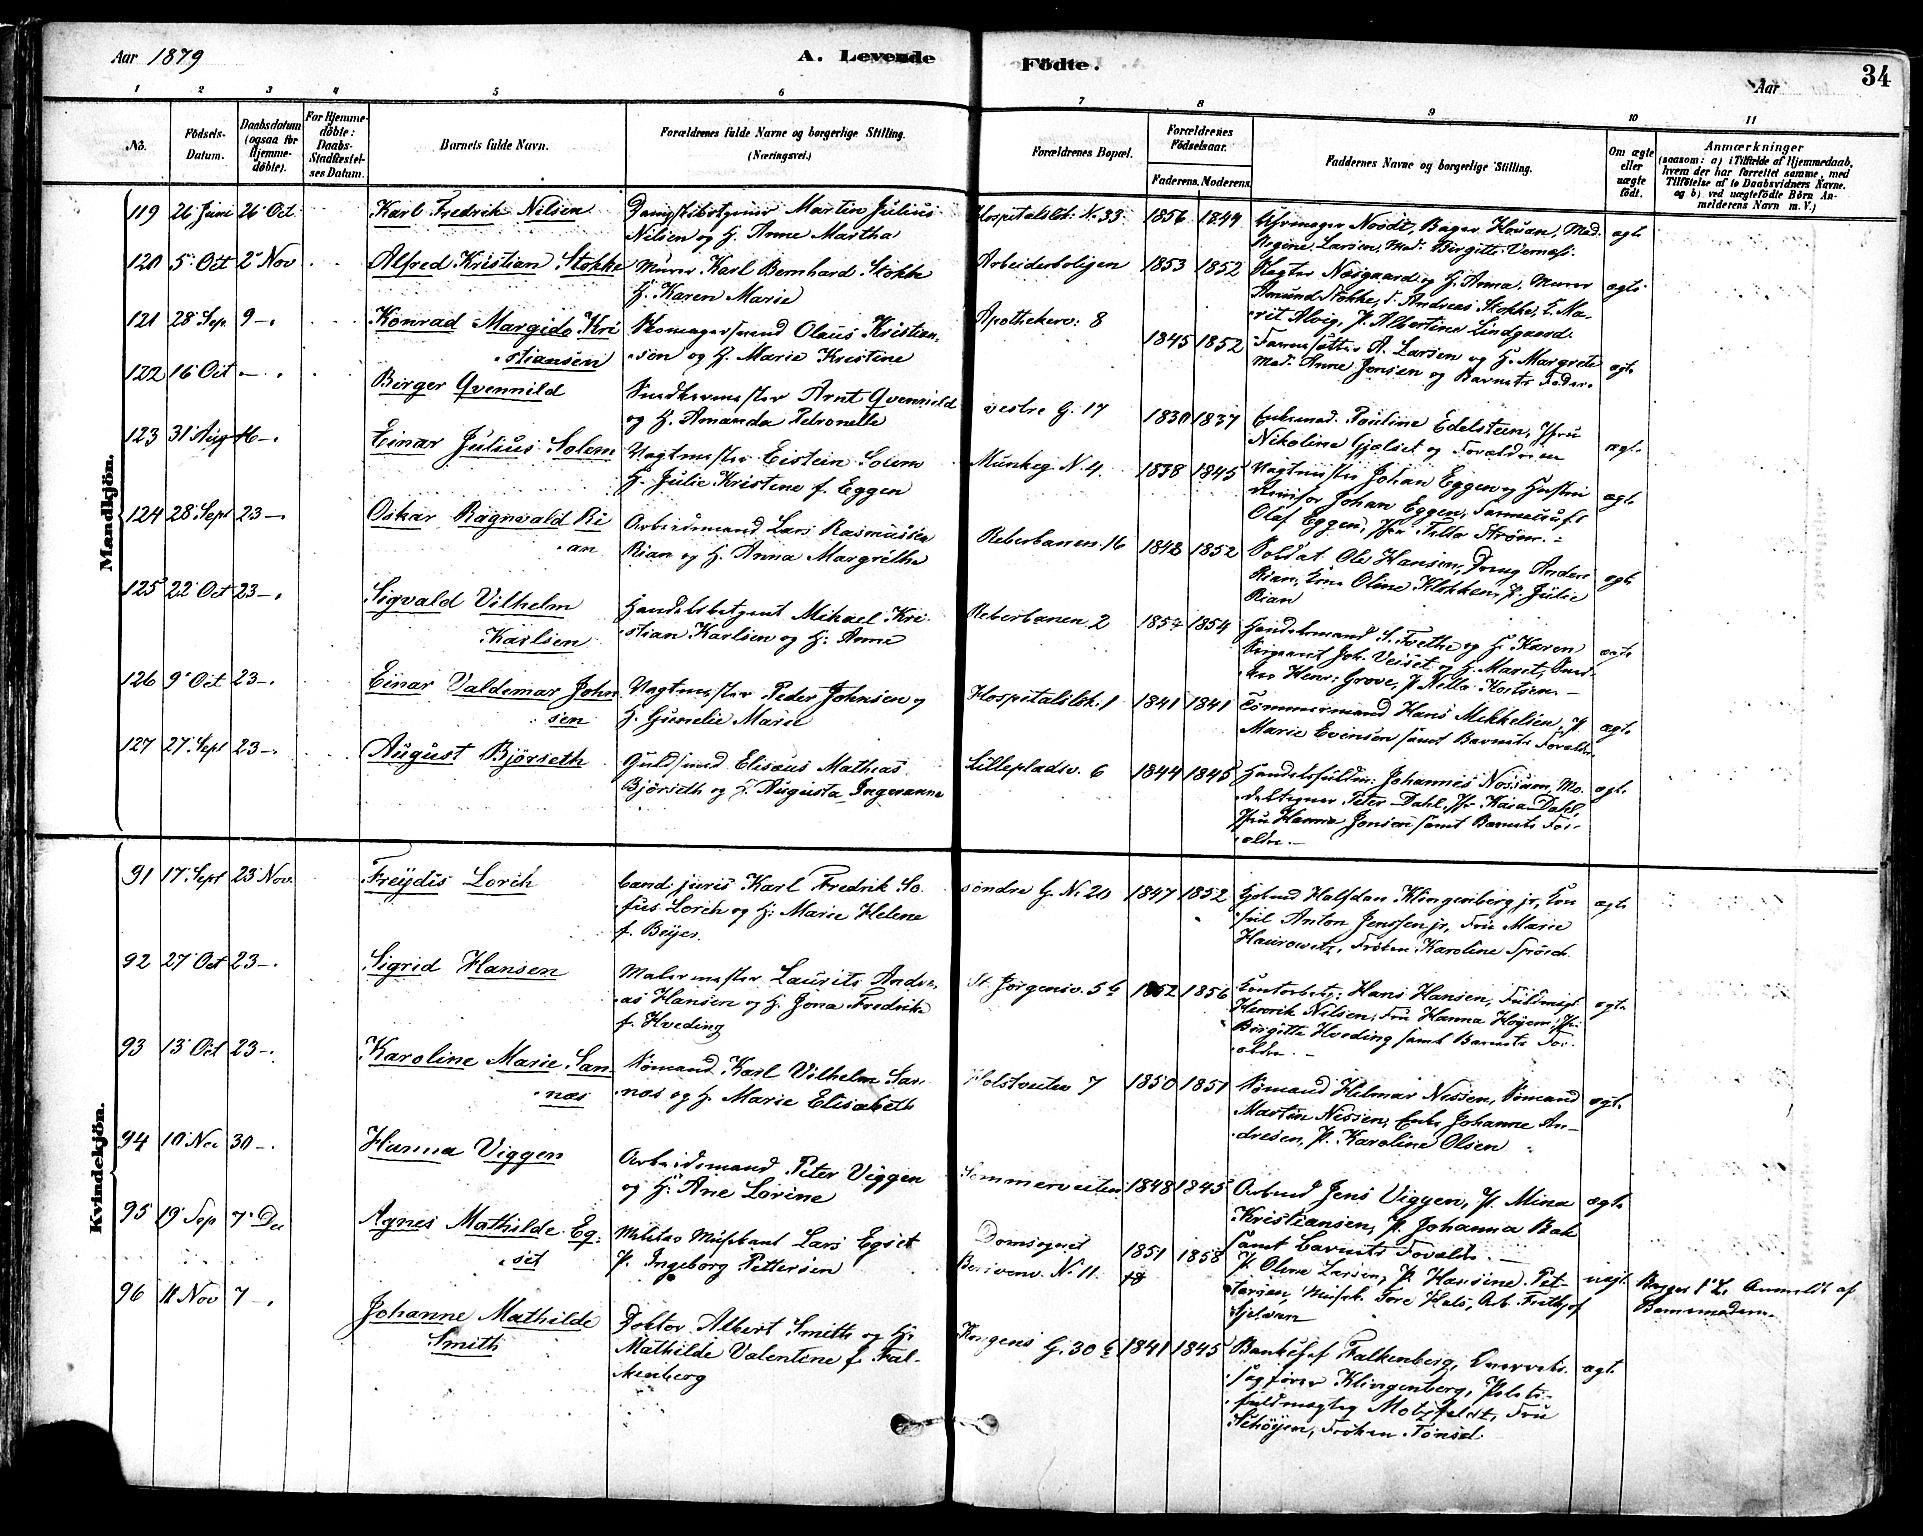 Aar 1879
A. Levende
Födte.
Aar
34
1 2 3 4 5 6 7 8 9 10 11
No.
Födsels-Datum.
Daabsdatum (ogsaa for Hjemme-döbte).
For Hjemme-döbte: Daabs-Stadfæstel-ses Datum.
Barnets fulde Navn.
Forældrenes fulde Navne og borgerlige Stilling.
(Næringsvei.)
Forældrenes Bopæl.
Forældrenes Födselsaar.
Faderens. Moderens.
Faddernes Navne og borgerlige Stilling.
Om ægte eller uægte födt.
Anmærkninger
(saasom: a) i Tilfælde af Hjemmedaab,
hvem der har forrettet samme, med
Tilföielse af to Daabsvidners Navne.
og b) ved uægtefödte Börn An-
melderens Navn m. V.)
Mandkjön.
119 26 Juni 26 Oct. Karl Fredrik Nilsen Martin Julius
Nilsen og H. Anne Martha
Hospitalslk: N. 33. 1856 1849 Noodt, Bager Hasan, Mad.
Regine Larsen, Mad. Birgitte ægte
120 5 Oct 2 Nov Alfred Kristian Stokke Murer Karl Bernhard Stokke
H. Karen Marie
Arbeiderboligen 1853 1852 Slagter Næsgaard og H. Anna, Murer
Amund Stokke, Andreas Stokke, Ma-
rit Alvig, P. Albertine Lindgaard. ægte
121 28 Sep 9 -. Konrad Margido Kri
stiansen
Skomagersvend Olaus Kristian
sen og H. Marie Kristine
Apothekerv: 8 1845 1852 A. Larsen og H. Margrete
Mad. Anne Jensen og Barnets Fader. ægte
122 16 Oct -. Birger Qvennild
Snedkermester Arnt Qvennild
og H. Amanda Petronelle
vestre G. 17 1830 1837 Enkemad. Pauline Edelsteen, Jfru
Nikoline Gjølset og Forældrene ægte
123 31 Aug 16 -. Einar Julius Solem
Vagtmester Eistein Solem
H. Julie Kristine f. Eggen
Munkeg. N. 4. 1838 1845 Vagtmester Johan Eggen og Hustru
Revisor Johan Eggen,
Olaf Eggen, Jfru Strøm. ægte
124 28 Sept 23 -. Oskar Ragnvald Ri
an
Arbeidsmand Lars Rasmussen
Rian og H. Anna Margrethe
Reberbanen. 16 1848 1852 Soldat Ole Hansen, Dreng Anders
Rian, Kone Oline Klokken, P. Julie
Rian ægte
125 22 Oct 23 -. Sigvald Vilhelm
Karlsen
Handelsbetjent Mikael Kri
stian Karlsen og H. Anne
Reberbanen 2 1854 1854 Handelsmand S. Frethe og H. Karen
Sergeant Joh. Veiset og H. Maret,
Henr: Grove, P. Nella ægte
126 9 Oct 23 -. Einar Valdemar John
sen
Vagtmester Peder Johnsen og
H. Gunelie Marie
Hospitalslk. 1 1841 1841 Tømmermand Hans Mikkelsen, P.
Marie Evensen samt Barnets Forældre ægte
127 27 Sept 23 -. August Bjørseth
Guldsmed Elisæus Mathias
Bjørseth og H. Augusta Ingeranna
Lillepladsv. 6 1844 1845 Johannes Nossum, Mo.
Peter Dahl, Jfr Kaia Dahl,
Jfru Hanna Jensen samt Barnets For-
ældre. ægte
Kvindekjön.
91 17 Sept 23 Nov. Freydis Lorch
Cand. juris Karl Fredrik So.
fus Lorch og H. Marie Helene
f. Beyer.
søndre G. N. 20 1847 1852 Halfdan Klingenberg jr, Kon
sul Anton Jenssen jr, Fru Marie
Haurowitz, Frøken Karoline Sprøch. ægte
92 27 Oct 23 -. Sigrid Hansen
Malermester Laurits Andre
as Hansen og H. Jona Fredrike
f. Hveding
St. Jørgensv. 5b 1852 1856 Kontorbetj: Hans Hansen, Fuldmægt
Henrik Nilsen, Fru Hanna Høyem, Jfr.
Birgitte Hveding samt Barnets For.
ældre. ægte
93 13 Oct 23 -. Karoline Marie San
næs
Sømand Karl Vilhelm San
næs og H. Marie Elisabeth
Holstveiten 7 1850 1851 Sømand Helmar Nissen, Sømand
Martin Nissen, Enke Johanne An-
dresen, P. Karoline Olsen ægte
94 10 Nov 30 -. Hanna Viggen
Arbeidsmand Peter Viggen
og H. Ane Lovine
Sommerveiten 1848 1845 Arbmd Jens Viggen, P. Mina
Kristiansen, P. Johanna Bak
samt Barnets Forældre. ægte
95 19 Sep 7 Dec Agnes Mathilde Eg.
set
Militær Musikant Lars Egset
P. Ingeborg Pettersen
Domsognet
N. 11. 1851 1858 P. Oline Larsen, P. Hansine Pet-
tersen, Musik. Tore Hals, Arb. Frithjof
Fjelvær uægt. Anmeldt af
Barnemoderen.
96 11 Nov 7 -. Johanne Mathilde
Smith
Doktor Albert Smith og H.
Mathilde Valentine f. Fal-
kenberg
Kongens G. 30 b 1841 1845 Banksjef Falkenberg, Overrets-
sagfører Klingenberg, Politi-
fuldmægtig Motzfeldt, Fru
Schøyen, Frøken ægte